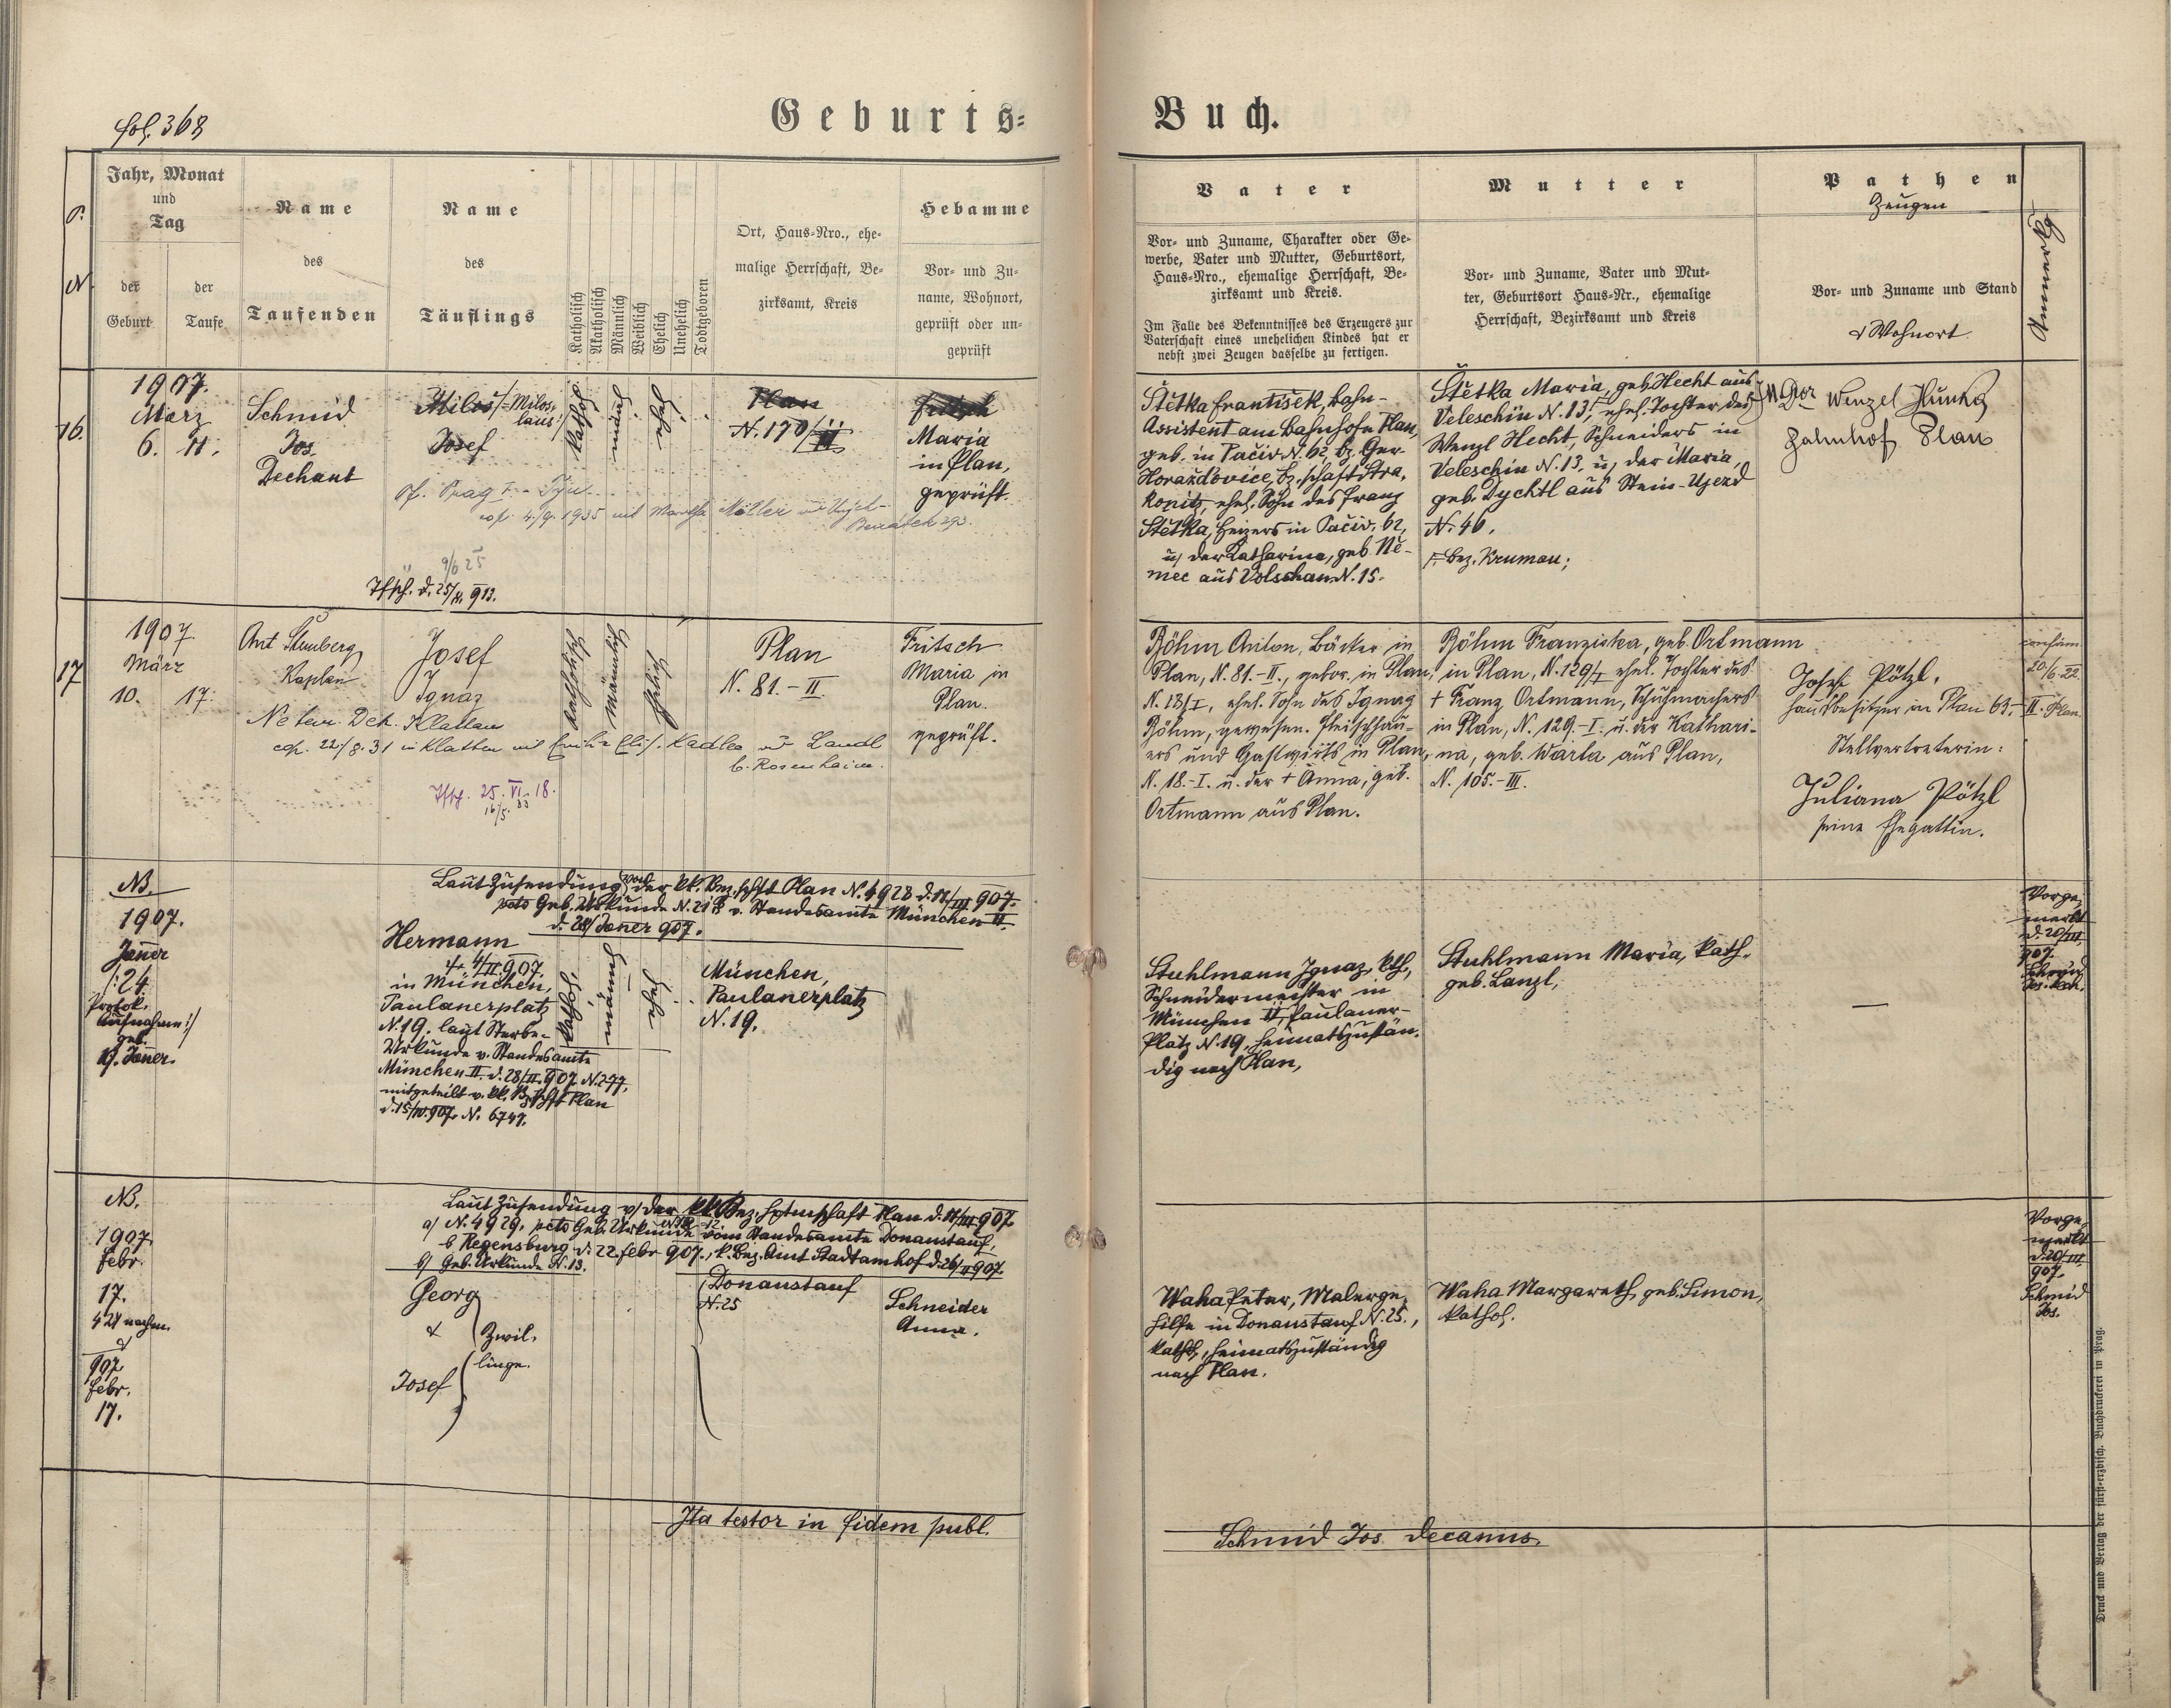 fol. 368
Geburts=
Buch.
Jahr, Monat
und
Tag
der
Geburt
der
Taufe
Name
des
Taufenden
Name
des
Täuflings
Katholisch
Akatholisch
Männlich
Weiblich
Ehelich
Unehelich
Todtgeboren
Ort, Haus=Nro., ehe=
malige Herrschaft, Be=
zirksamt, Kreis
Hebamme
Vor= und Zu=
name, Wohnort,
geprüft oder un=
geprüft
Vater
Vor= und Zuname, Charakter oder Ge=
werbe, Vater und Mutter, Geburtsort,
Haus=Nro., ehemalige Herrschaft, Be=
zirksamt und Kreis.
Im Falle des Bekenntnisses des Erzeugers zur
Vaterschaft eines unehelichen Kindes hat er
nebst zwei Zeugen dasselbe zu fertigen.
Mutter
Vor= und Zuname, Vater und Mut=
ter, Geburtsort Haus=Nr., ehemalige
Herrschaft, Bezirksamt und Kreis
Pathen
Zeugen
Vor= und Zuname und Stand
& Wohnort
Anmerkg.
16.
1907.
März
6. 11.
Schmid
Jos.
Dechant
Milos /=Milos-
laus/
Josef
kathol.
männl.
ehel.
Plan
N. 170/II
Fritsch
Maria
in Plan,
geprüft.
cop. 4./9. 1935 mit Martha Möller
9/6 25
d. 25/ 913.
Štětka František, Bahn-
Assistent am Bahnhofe Plan,
geb. in Pačiv N. 62, bz. Ger.
Horažďovice, bz.schaft Stra-
konitz, ehel. Sohn des Franz
Štětka, Heizers in Pačiv, 62,
u/ der Katharina, geb. Ně-
mec aus Volschan N. 15.
Štětka Maria, geb. Hecht aus
Veleschin N. 13, ehel. Tochter des
Wenzl Hecht, Schneiders in
Veleschin N. 13, u/ der Maria,
geb. Dychtl aus Stein-Ujezd
N. 46.
Bez. Krumau;
Wenzel
Bahnhof Plan
17
1907.
März
10. 17.
Ant
Kaplan
Josef
Ignaz
katholisch
männlich
ehelich
Plan
N. 81.-II
Fritsch
Maria in
Plan.
geprüft.
Ne temere Dek. Klattau
cop. 22/8.31 in Klattau mit Kadlec
b. Rosenheim.
25. VI. 18.
16/5. 33
Böhm Anton, Bäcker in
Plan, N. 81.-II., gebor. in Plan,
N. 18/I, ehel. Sohn des Ignaz
Böhm, gewesen. Fleischhau-
ers und Gastwirts in Plan,
N. 18.-I. u. der + Anna, geb.
Ortmann aus Plan.
Böhm Franziska, geb. Ortmann
in Plan, N. 129/I ehel. Tochter des
+ Franz Ortmann, Schuhmachers
in Plan, N. 129.-I. u. der Kathari-
na, geb. Warta aus Plan,
N. 105.-III.
Josef Pötzl,
Hausbesitzer in Plan 63.-II.
Stellvertreterin:
Juliana Pötzl
seine Ehegattin.
20/6.22
Plan
NB.
1907.
Jäner
/:24.
Protok.
Aufnahme:/
geb.
19. Jäner.
Laut Zusendung von der kk. Bez.hptft Plan N. 4928 d. 17/III 907.
pcto Geb. Urkunde v. Standesamte München II.
d. 28/ Jäner 907.
Hermann
+ 4/II 907.
in München,
Paulanerplatz
N. 19. laut Sterbe-
Urkunde v. Standesamte
München II. d. 28/II. 907 N. 277,
mitgeteilt v. kk. Bz.hptft Plan
d. 15/IV. 907. N. 6749.
kathol.
männl.
ehel.
München,
Paulanerplatz
N. 19.
Stuhlmann Ignaz, kth.,
Schneidermeister in
München II, Paulaner-
Platz N. 19, heimatszustän-
dig nach Plan,
Stuhlmann Maria, kath.
geb. Lanzl,
—
Vorge-
merkt
d. 20/III.
907.
Schmid
Jos. Dech.
NB.
1907.
Febr.
17.
nachm.
&
907.
Febr.
17.
Laut Zusendung v/ der kk. Bez.hptmschaft Plan d. 17/III 907.
a/ N. 4929, pcto Geb. Urkunde N. 12. vom Standesamte Donaustauf,
b Regensburg d. 22. Febr 907., k. Bez. Amt Stadtamhof d. 26/II 907.
b/ Geb. Urkunde N. 13.
Georg
& Zwil-
linge.
Josef
Donaustauf
N. 25
Schneider
Anna.
Waha Peter, Malerge-
hilfe in Donaustauf N. 25.,
kathol., heimatszuständig
nach Plan.
Waha Margareth, geb. Simon,
kathol.
Vorge-
merkt
d. 20/III.
907.
Schmid
Jos.
Ita testor in fidem publ.
Schmid Jos. Decanus.
Druck und Verlag der fürst=erzbisch. Buchdruckerei in Prag.